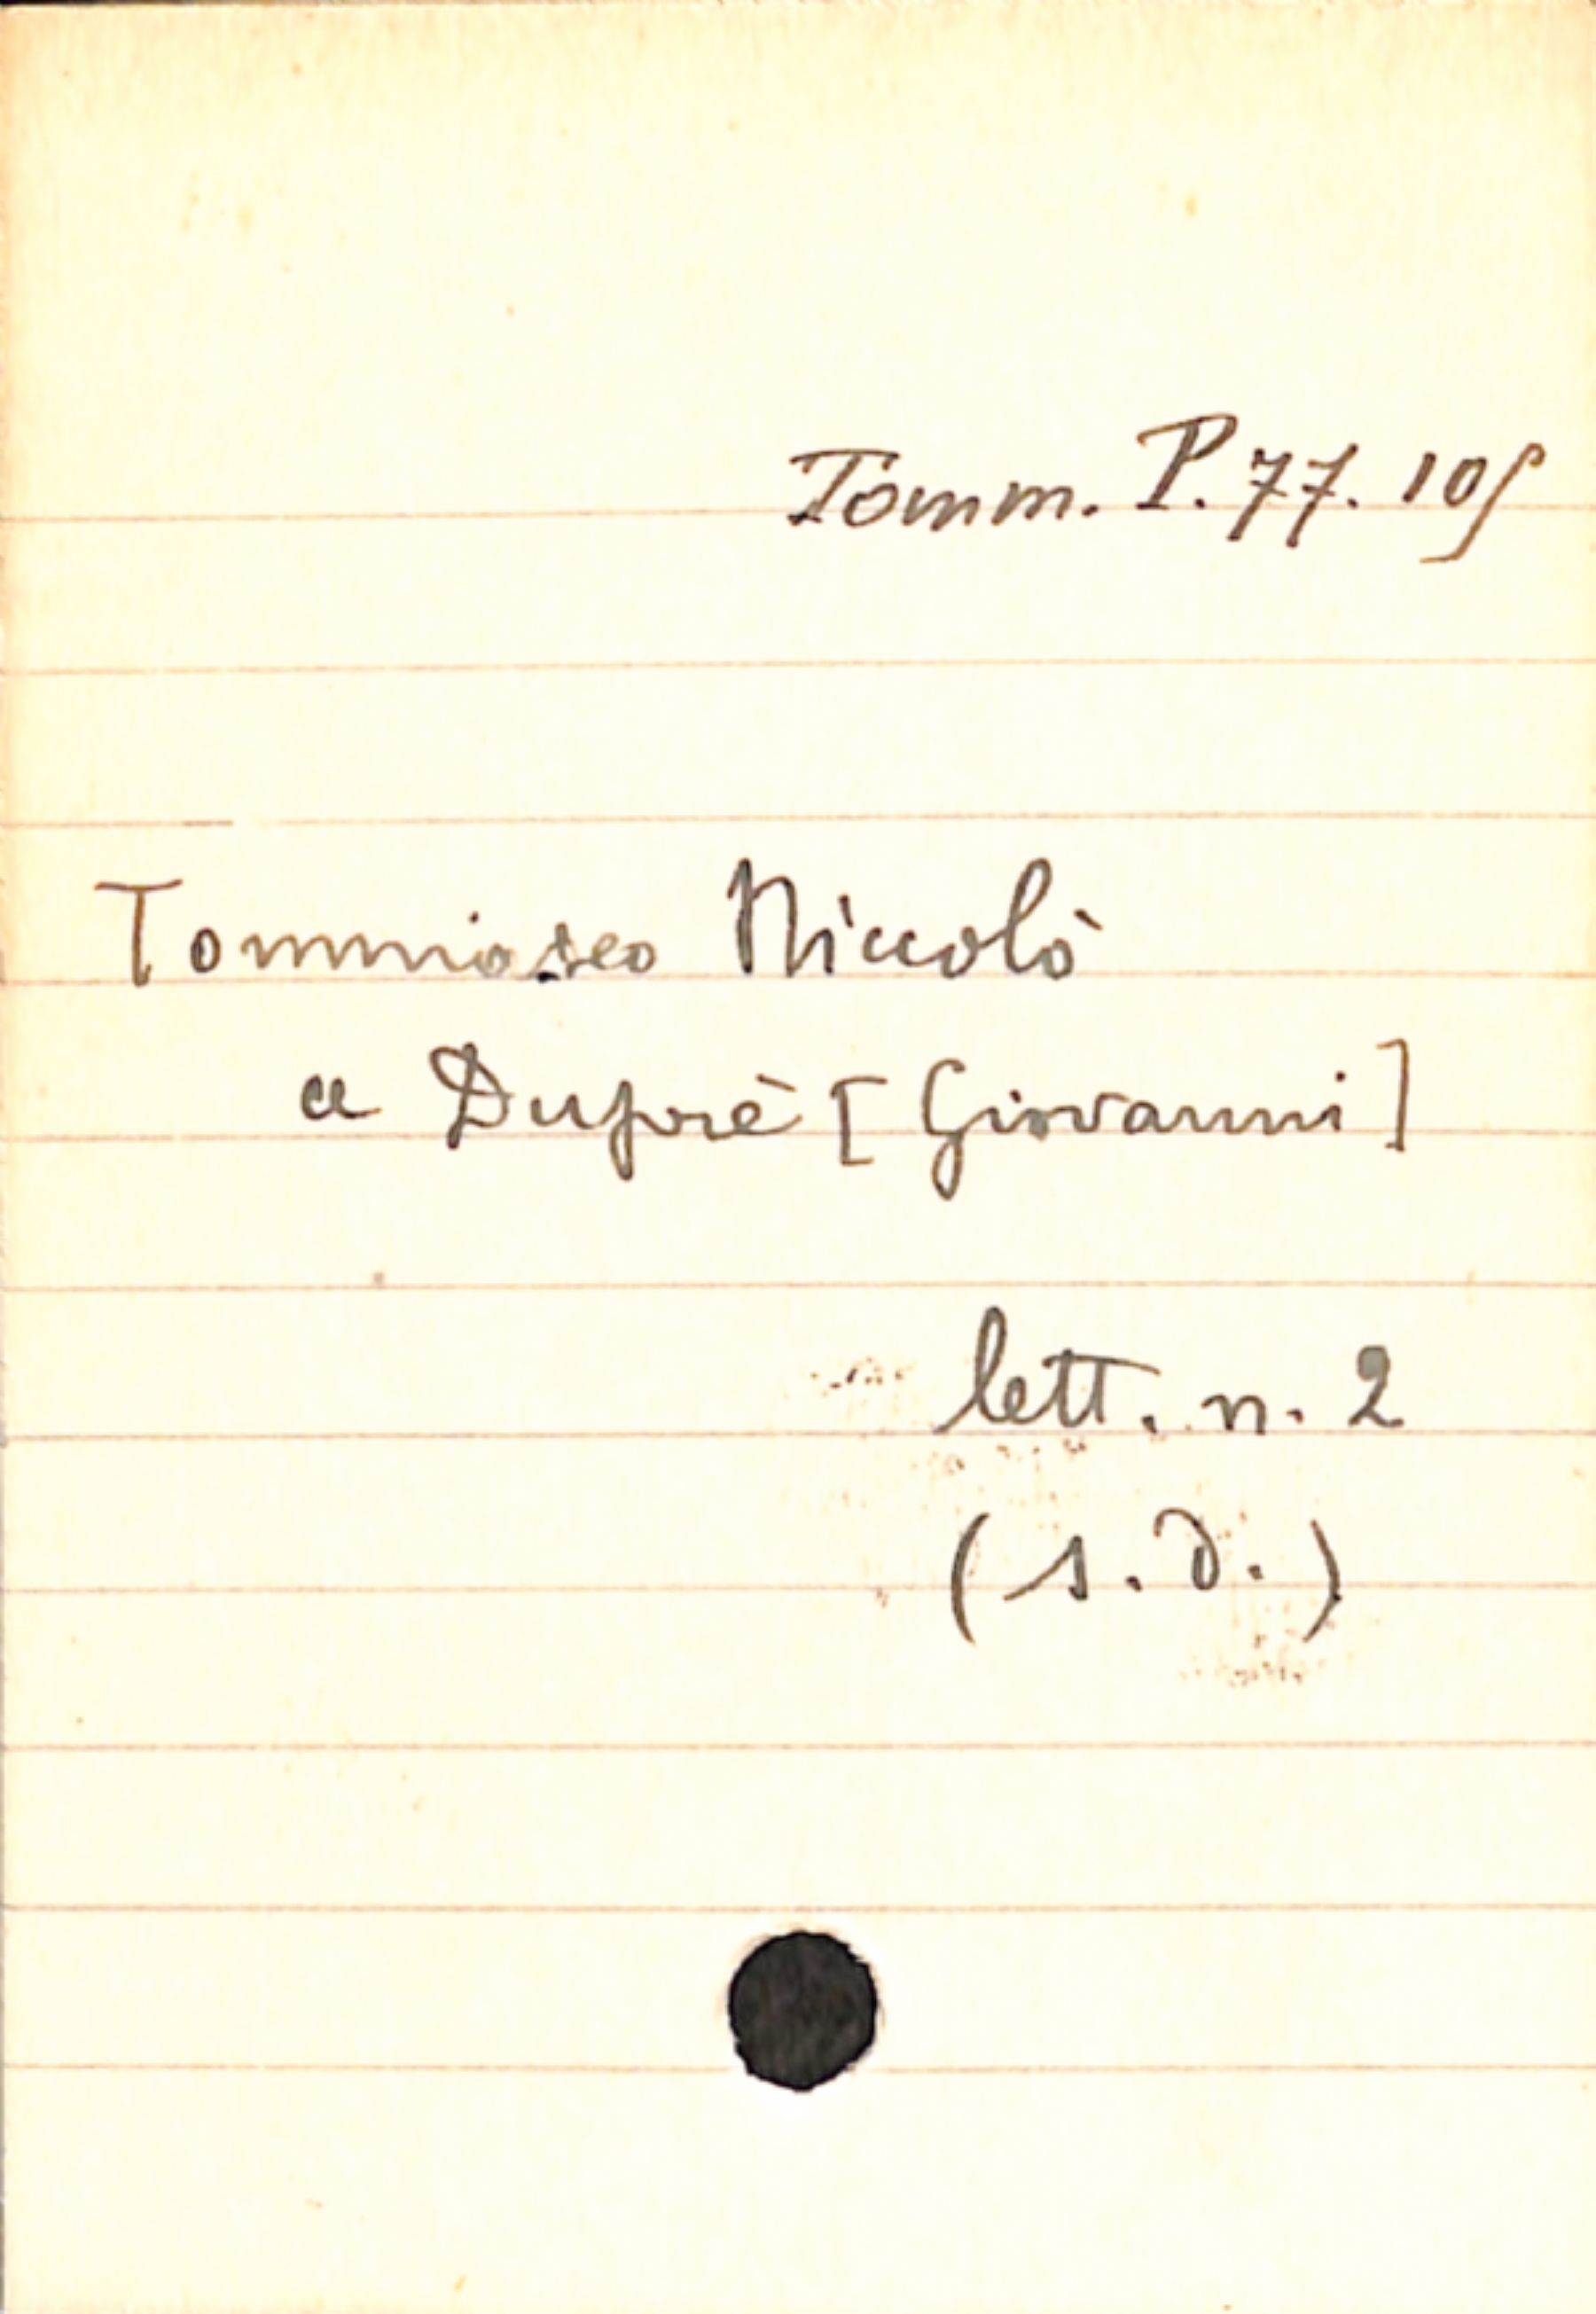 Tomm. P. 77. 105
Tommaseo Niccolò
a Duprè [Giovanni]
lett. n. 2
(s.d.)